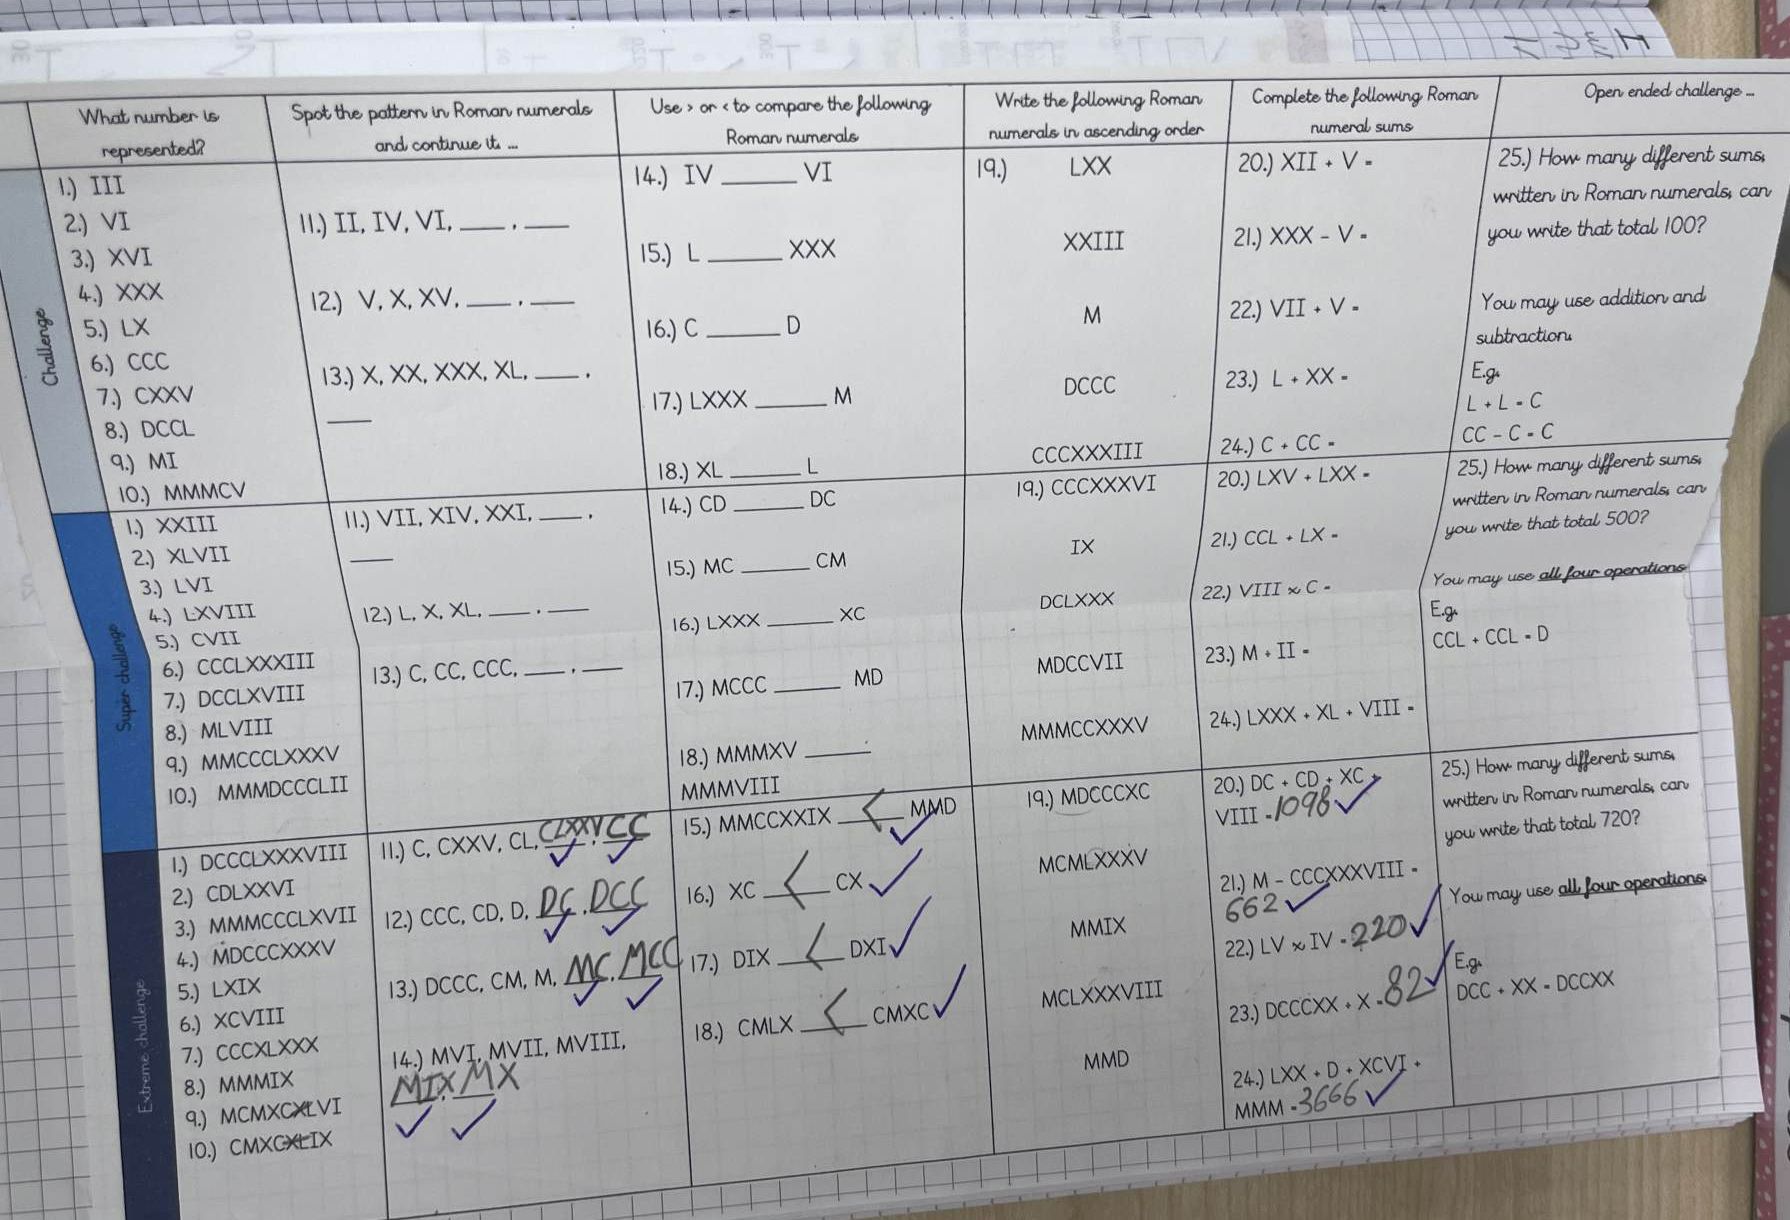 What number is
represented?
Spot the pattern in Roman numerals
and continue it ...
Use > or < to compare the following
Roman numerals
Write the following Roman
numerals in ascending order
Complete the following Roman
numeral sums
Open ended challenge ...
Challenge
1.) III
2.) VI
3.) XVI
4.) XXX
5.) LX
6.) CCC
7.) CXXV
8.) DCCL
9.) MI
10.) MMMCV
11.) II, IV, VI, ____ , ____
12.) V, X, XV, ____ , ____
13.) X, XX, XXX, XL, ____ ,
____
14.) IV ____ VI
15.) L ____ XXX
16.) C ____ D
17.) LXXX ____ M
18.) XL ____ L
19.) LXX
XXIII
M
DCCC
CCCXXXIII
20.) XII + V =
21.) XXX - V =
22.) VII + V =
23.) L + XX =
24.) C + CC =
25.) How many different sums,
written in Roman numerals, can
you write that total 100?
You may use addition and
subtraction.
E.g.
L + L = C
CC - C = C
Super challenge
1.) XXIII
2.) XLVII
3.) LVI
4.) LXVIII
5.) CVII
6.) CCCLXXXIII
7.) DCCLXVIII
8.) MLVIII
9.) MMCCCLXXXV
10.) MMMDCCCLII
11.) VII, XIV, XXI, ____ ,
____
12.) L, X, XL, ____ , ____
13.) C, CC, CCC, ____ , ____
14.) CD ____ DC
15.) MC ____ CM
16.) LXXX ____ XC
17.) MCCC ____ MD
18.) MMMXV ____
MMMVIII
19.) CCCXXXVI
IX
DCLXXX
MDCCVII
MMMCCXXXV
20.) LXV + LXX =
21.) CCL + LX =
22.) VIII x C =
23.) M ÷ II =
24.) LXXX + XL + VIII =
25.) How many different sums,
written in Roman numerals, can
you write that total 500?
You may use all four operations
E.g.
CCL + CCL = D
Extreme challenge
1.) DCCCLXXXVIII
2.) CDLXXVI
3.) MMMCCCLXVII
4.) MDCCCXXXV
5.) LXIX
6.) XCVIII
7.) CCCXLXXX
8.) MMMIX
9.) MCMXCXLVI
10.) CMXCXLIX
11.) C, CXXV, CL, CLXXV, CC
12.) CCC, CD, D, DC, DCC
13.) DCCC, CM, M, MC, MCC
14.) MVI, MVII, MVIII,
MIX, MX
15.) MMCCXXIX < MMD
16.) XC < CX
17.) DIX < DXI
18.) CMLX < CMXC
19.) MDCCCXC
MCMLXXXV
MMIX
MCLXXXVIII
MMD
20.) DC + CD + XC +
VIII = 1098
21.) M - CCCXXXVIII =
662
22.) LV x IV = 220
23.) DCCCXX ÷ X = 82
24.) LXX + D + XCVI +
MMM = 3666
25.) How many different sums,
written in Roman numerals, can
you write that total 720?
You may use all four operations.
E.g.
DCC + XX = DCCXX